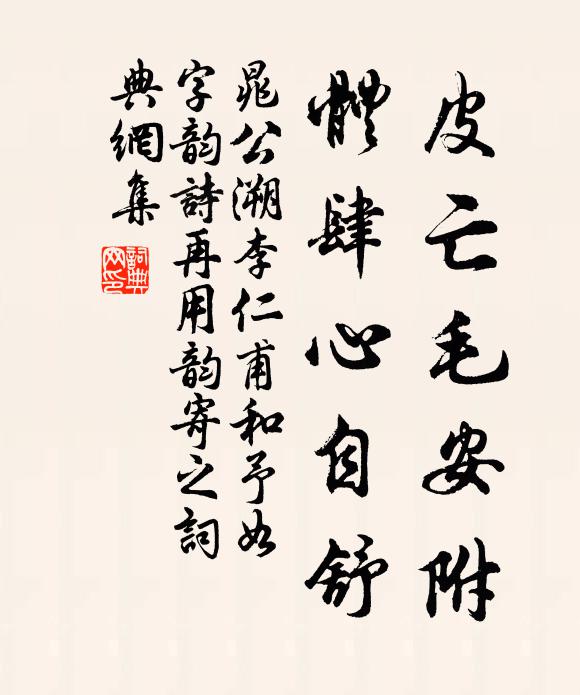 皮亡毛安附
體肆心自舒
晁公溯李仁甫和予如
字韵詩再用韵寄之詞
典網集
詞典
网印